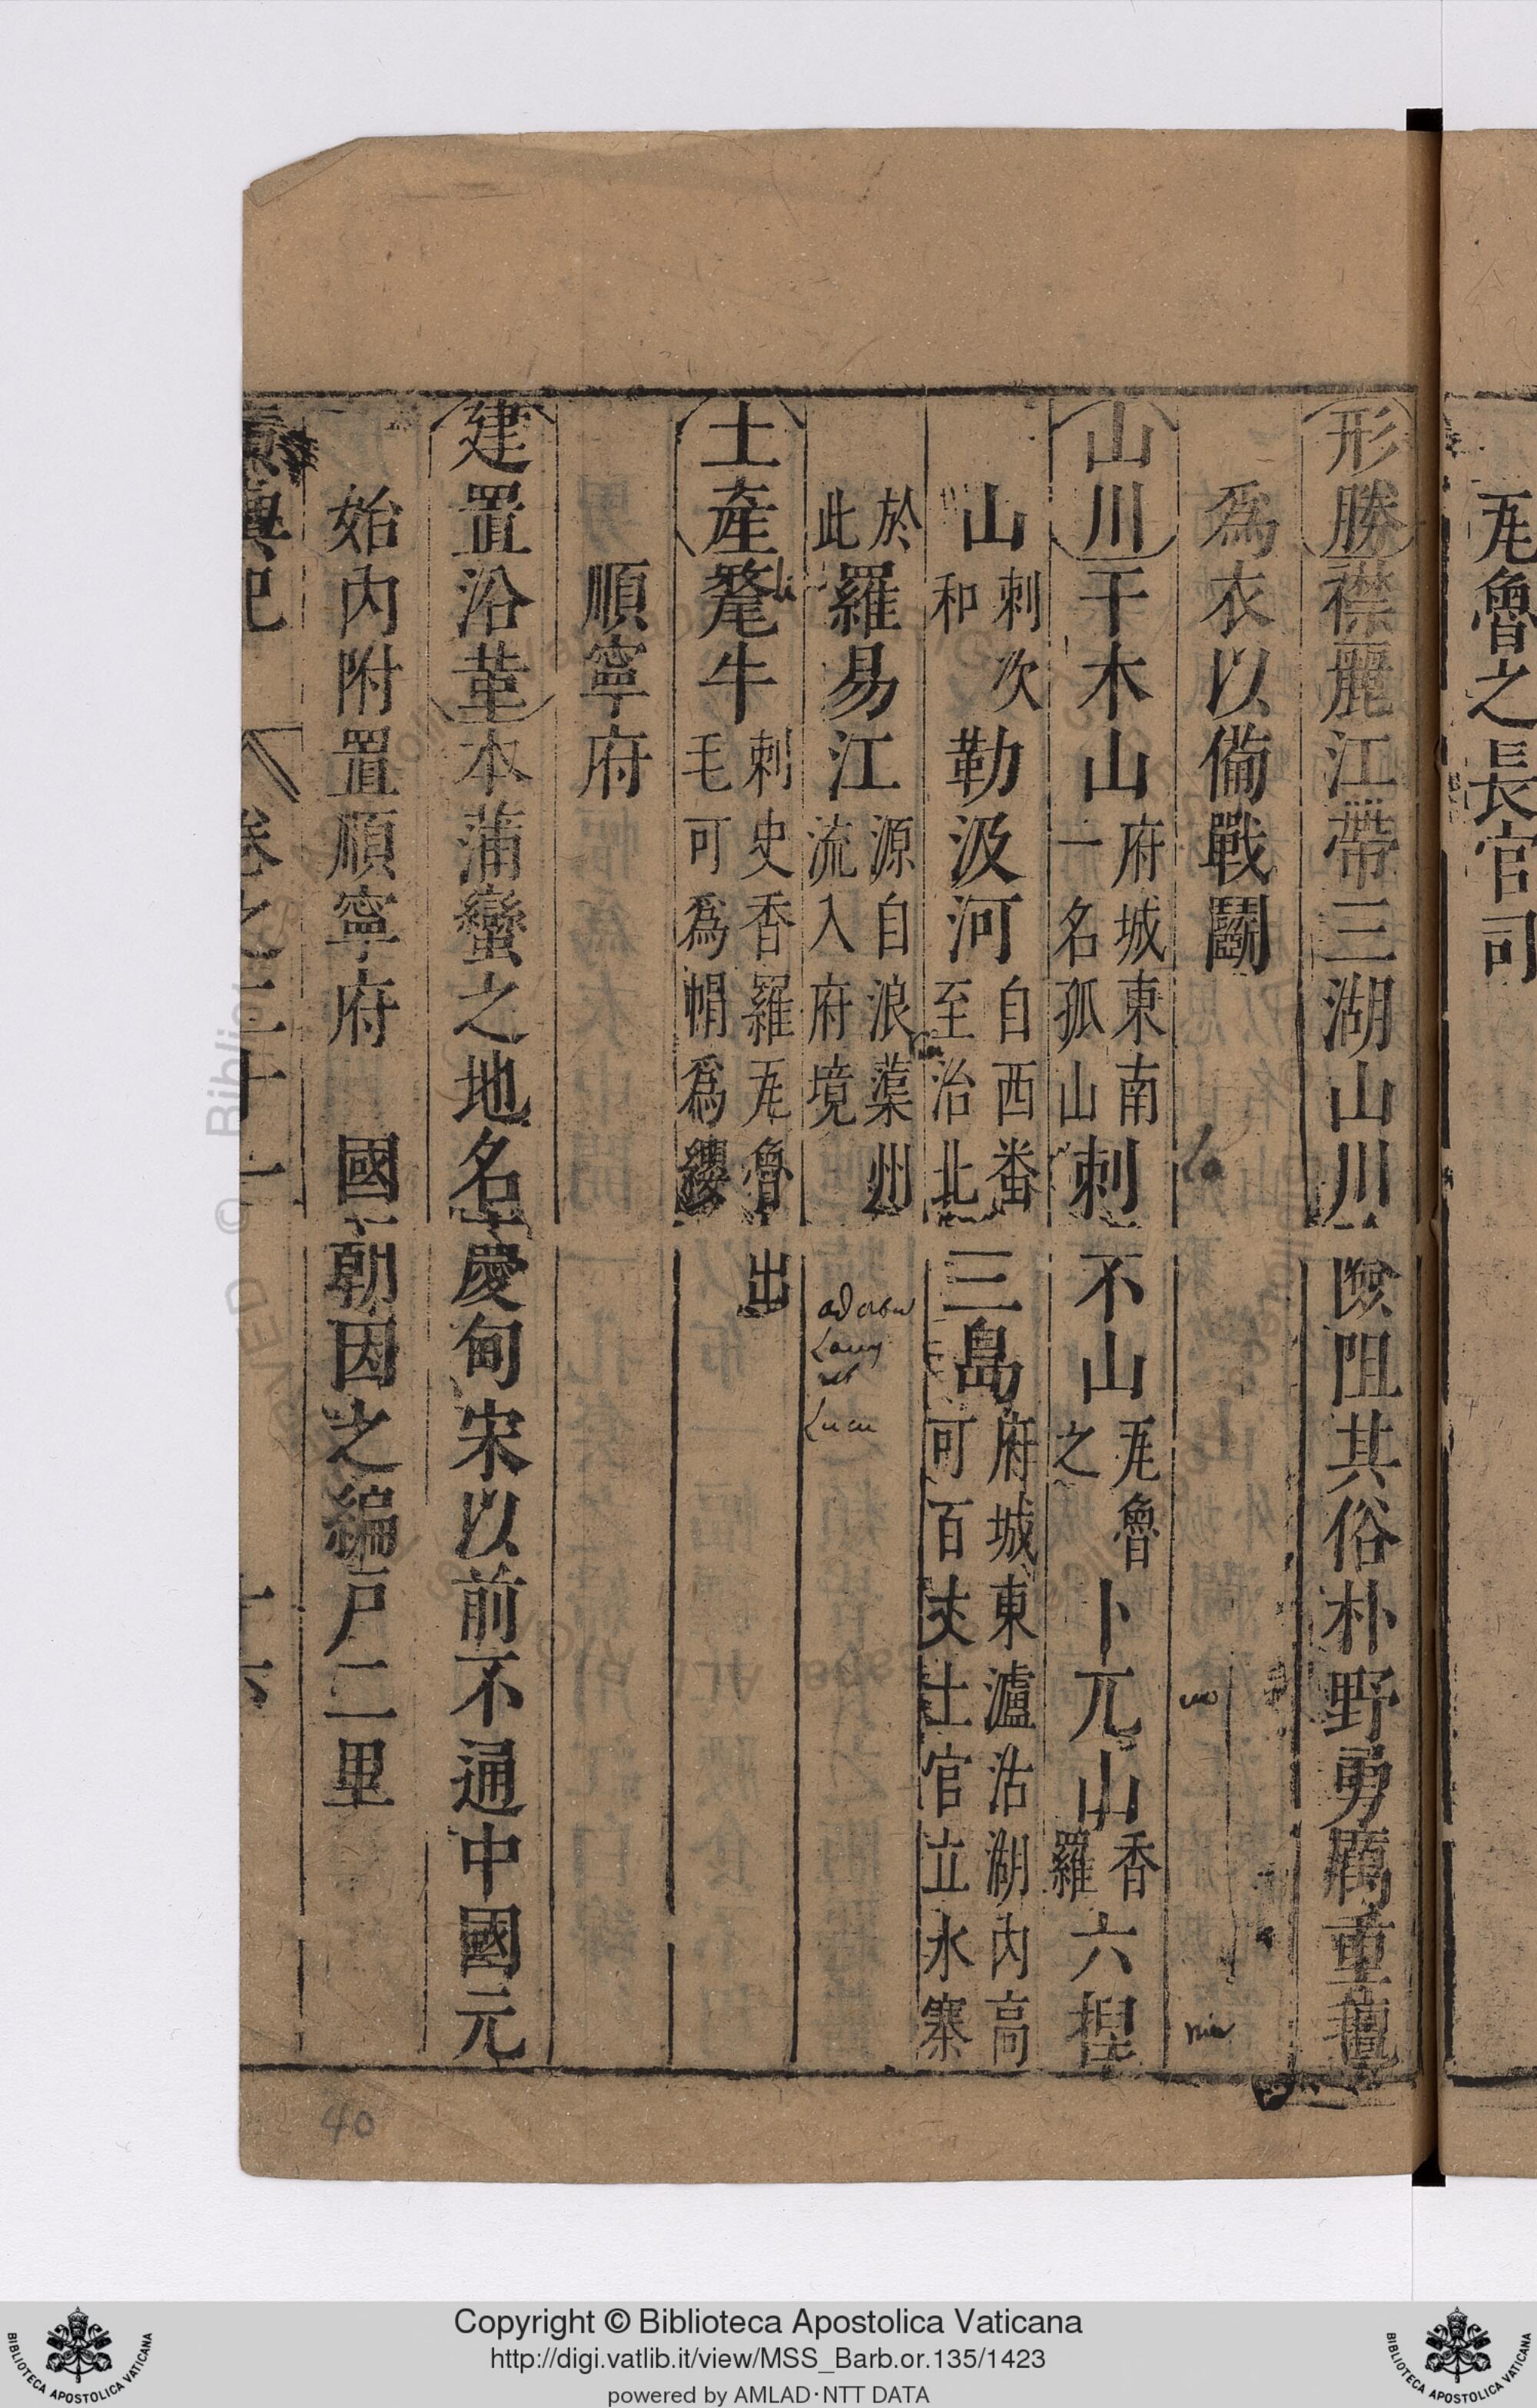 瓦魯之長官司
形勝 襟麗江帶三湖山川險阻其俗朴野勇厲重氊
爲衣以備戰鬭
山川 干木山 府城東南一名孤山 刺不山 瓦魯之 卜兀山 香羅 六揑
山 刺次和 勒汲河 自西番至治北 三島 府城東瀘沽湖內高可百丈土官立水寨
於此 羅易江 源自浪蕖州流入府境
土產 氂牛 刺史香羅瓦魯出毛可爲帽爲纓
順寧府
建置沿革 本蒲蠻之地名慶甸宋以前不通中國元
始內附置順寧府 國朝因之編戶二里
輿記 卷之二十一 十六
li
40
Copyright © Biblioteca Apostolica Vaticana
http://digi.vatlib.it/view/MSS_Barb.or.135/1423
powered by AMLAD·NTT DATA
BIBLIOTECA APOSTOLICA VATICANA
BIBLIOTECA APOSTOLICA VATICANA